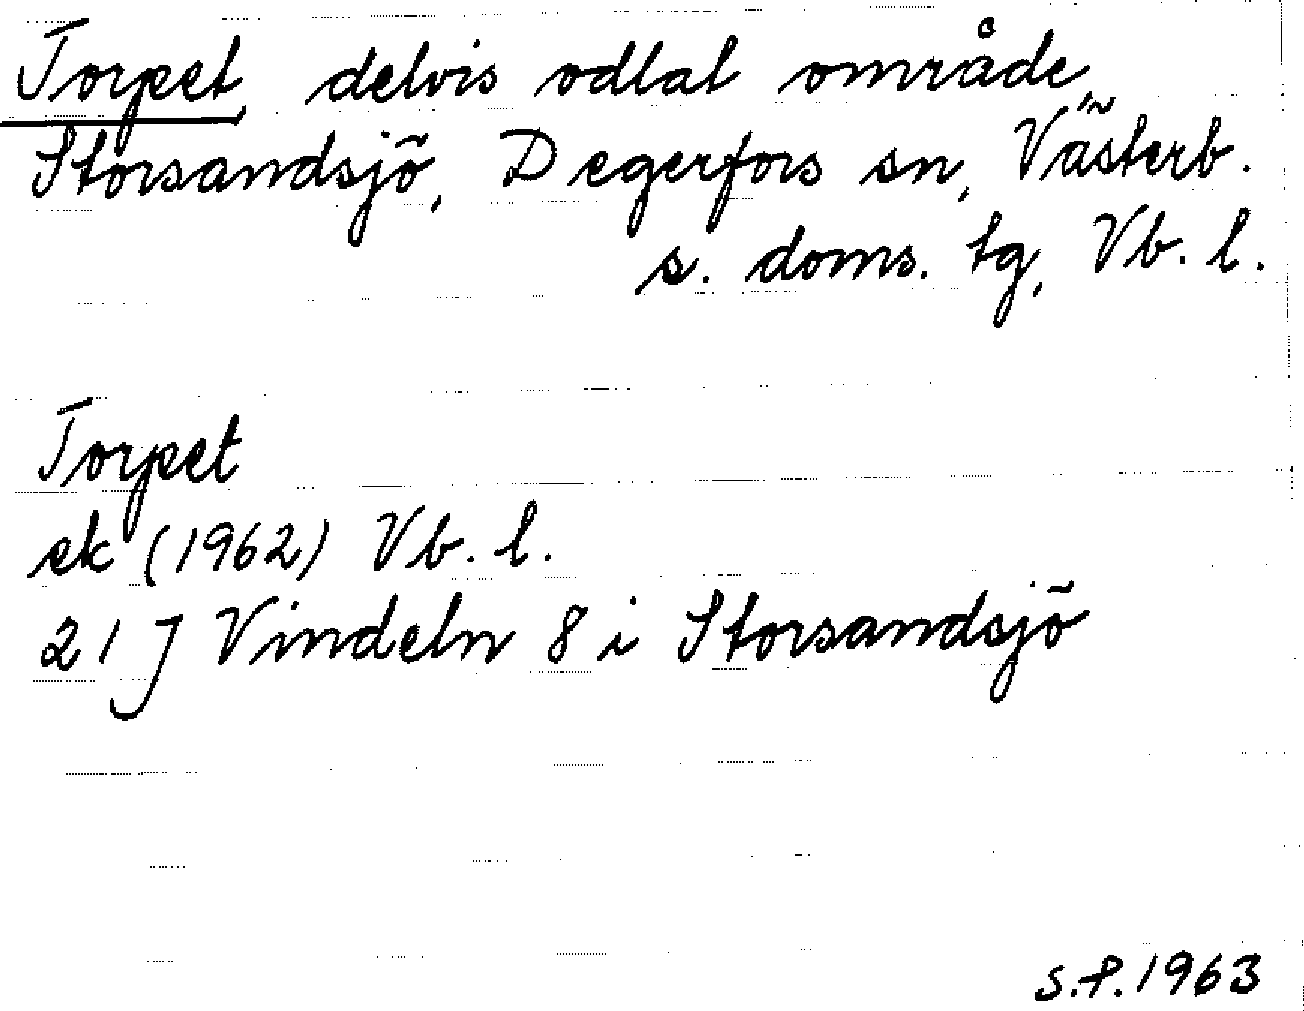 Torpet, delvis odlat område,
Storsandsjö, Degerfors sn, Västerb.
s. doms. tg, Vb. l.
Torpet
ek (1962) Vb. l.
21 J Vindeln 8 i Storsandsjö
S.P. 1963